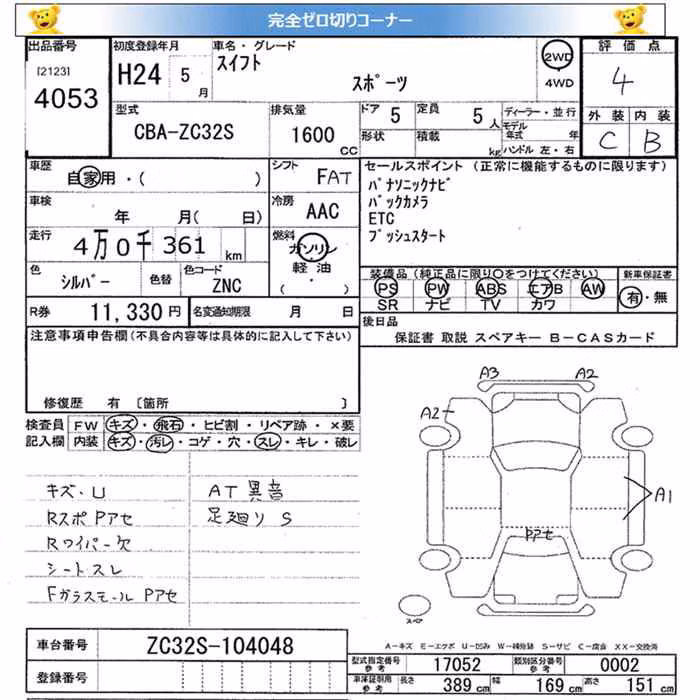 完全ゼロ切りコーナー
出品番号 初度登録年月 車名・グレード 評価点
[2123] 4053 H24 5月 スイフト スポーツ 2WD 4WD 4
型式 CBA-ZC32S 排気量 1600 CC ドア 5 定員 5人 ディーラー・並行
形状 積載 kg モデル年式 年 ハンドル 左・右 外装 C 内装 B
車歴 自家用・( ) シフト FAT セールスポイント (正常に機能するものに限ります)
パナソニックナビ
車検 年 月( 日) 冷房 AAC バックカメラ
ETC
プッシュスタート
走行 4万0千361km 燃料 ガソリン 軽油・( )
色 シルバー 色替 色コード ZNC 装備品(純正品に限り○をつけてください) 新車保証書
PS PW ABS エアB AW 有・無
SR ナビ TV カワ
R券 11,330円 名変通知期限 月 日 後日品
保証書 取説 スペアキー B-CASカード
注意事項申告欄(不具合内容等は具体的に記入して下さい)
修復歴 有 [箇所 ]
検査員 FW キズ・飛石・ヒビ割・リペア跡・×要
記入欄 内装 キズ・汚レ・コゲ・穴・スレ・キレ・破レ
キズ・U AT異音
Rスポ Pアセ 足廻り S
Rワイパー欠
シートスレ
Fガラスモール Pアセ
A3 A2
A2
A1
Pアセ
スペア
A-キズ E-エクボ U-凹み W-補修跡 S-サビ C-腐食 XX-交換済
車台番号 ZC32S-104048
登録番号
型式指定番号 参考 17052 類別区分番号 参考 0002
車庫証明用 参考 長さ 389cm 幅 169cm 高さ 151cm